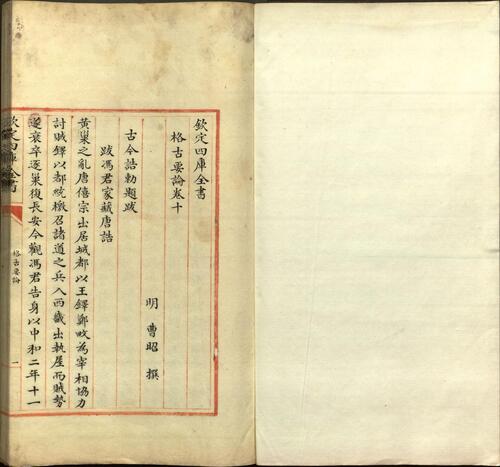 欽定四庫全書
格古要論卷十
明 曹昭 撰
古今誥勅題跋
跋馮君家藏唐誥
黃巢之亂唐僖宗出居城都以王鐸鄭畋為宰相協力
討賊鐸以都統檄召諸道之兵入西畿出執屋而賊勢
遂衰卒逐巢復長安今觀馮君告身以中和二年十一
欽定四庫全書
格古要論
一